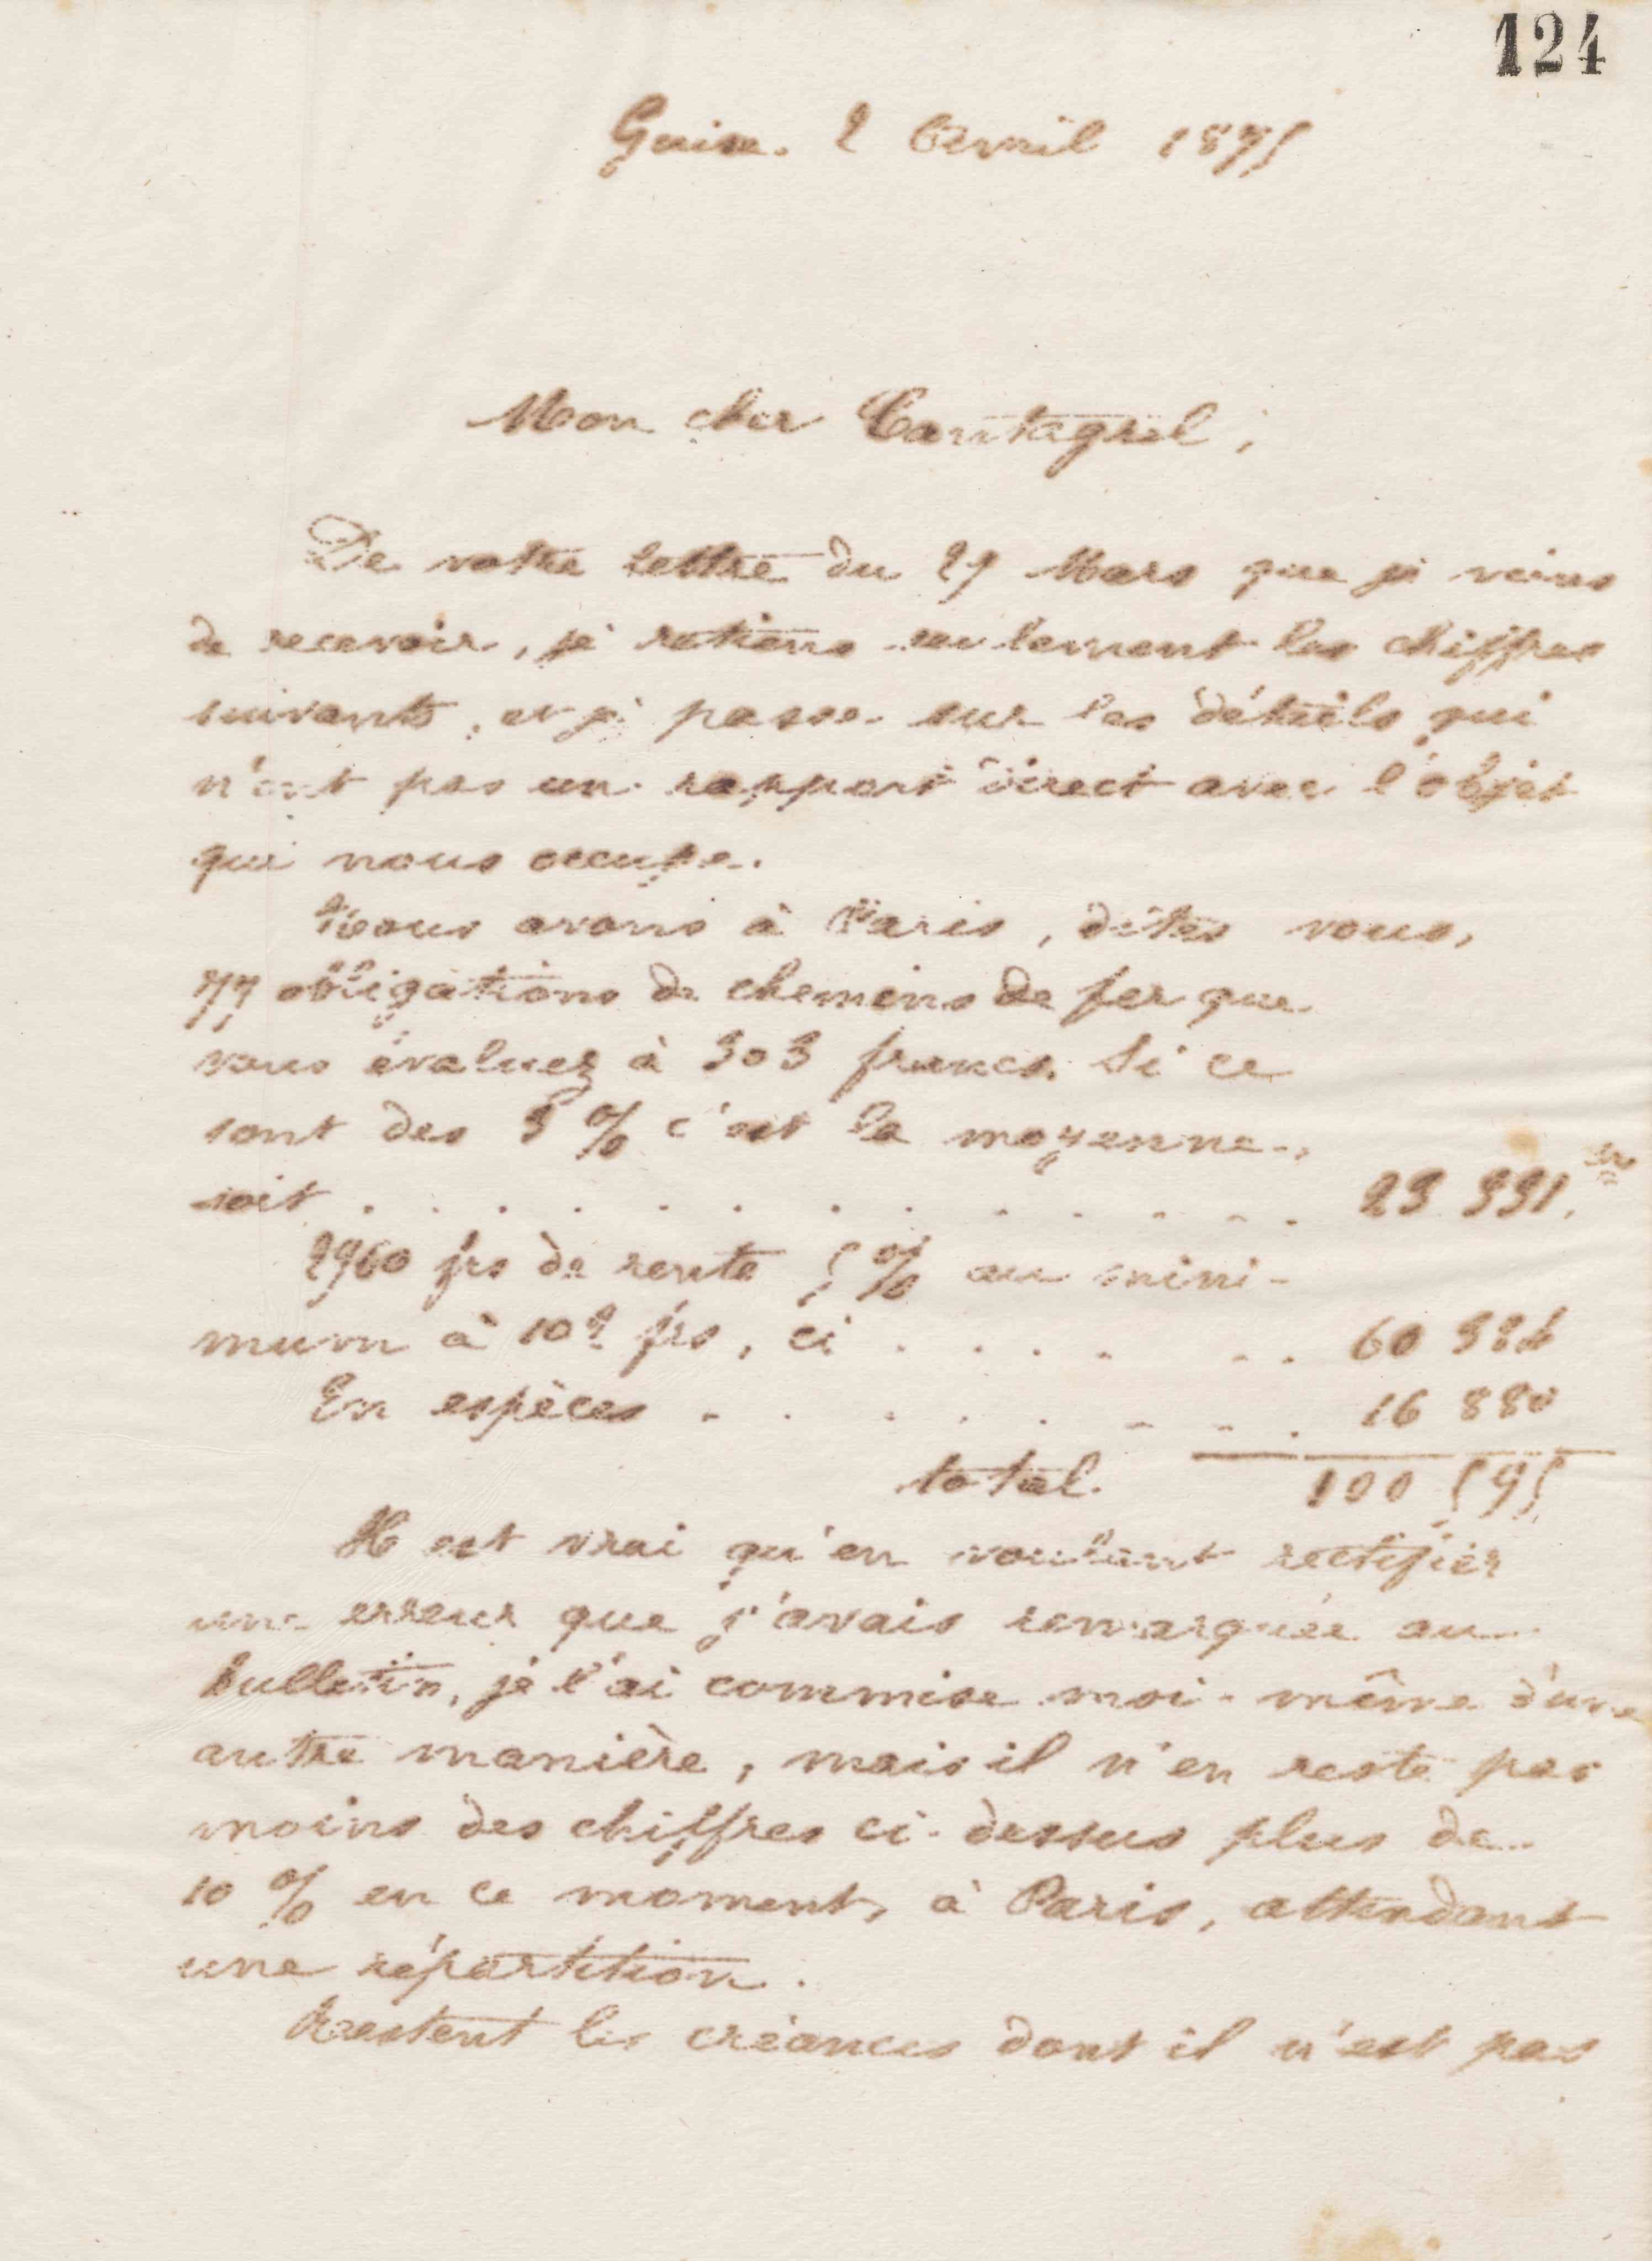 124
Guise. 2 Avril 1875
Mon cher Cantagrel,
De votre lettre du 29 Mars que je viens
de recevoir, je retiens seulement les chiffres
suivants, et je passe sur les détails qui
n'ont pas un rapport direct avec l'objet
qui nous occupe.
Nous avons à Paris, dites vous,
77 obligations de chemins de fer que
vous évaluez à 303 francs. Si ce
sont des 3 % c'est la moyenne,
soit . . . . . . . . . . . . . 23 331. frs
2960 frs de rente 5 % au mini-
mum à 102 frs, ci . . . . . . 60 384
En espèces . . . . . . . . 16 880
total. 100 595
Il est vrai qu'en voulant rectifier
une erreur que j'avais remarquée au
bulletin, je l'ai commise moi-même d'une
autre manière, mais il n'en reste pas
moins des chiffres ci-dessus plus de
10 % en ce moment, à Paris, attendant
une répartition.
Restent les créances dont il n'est pas